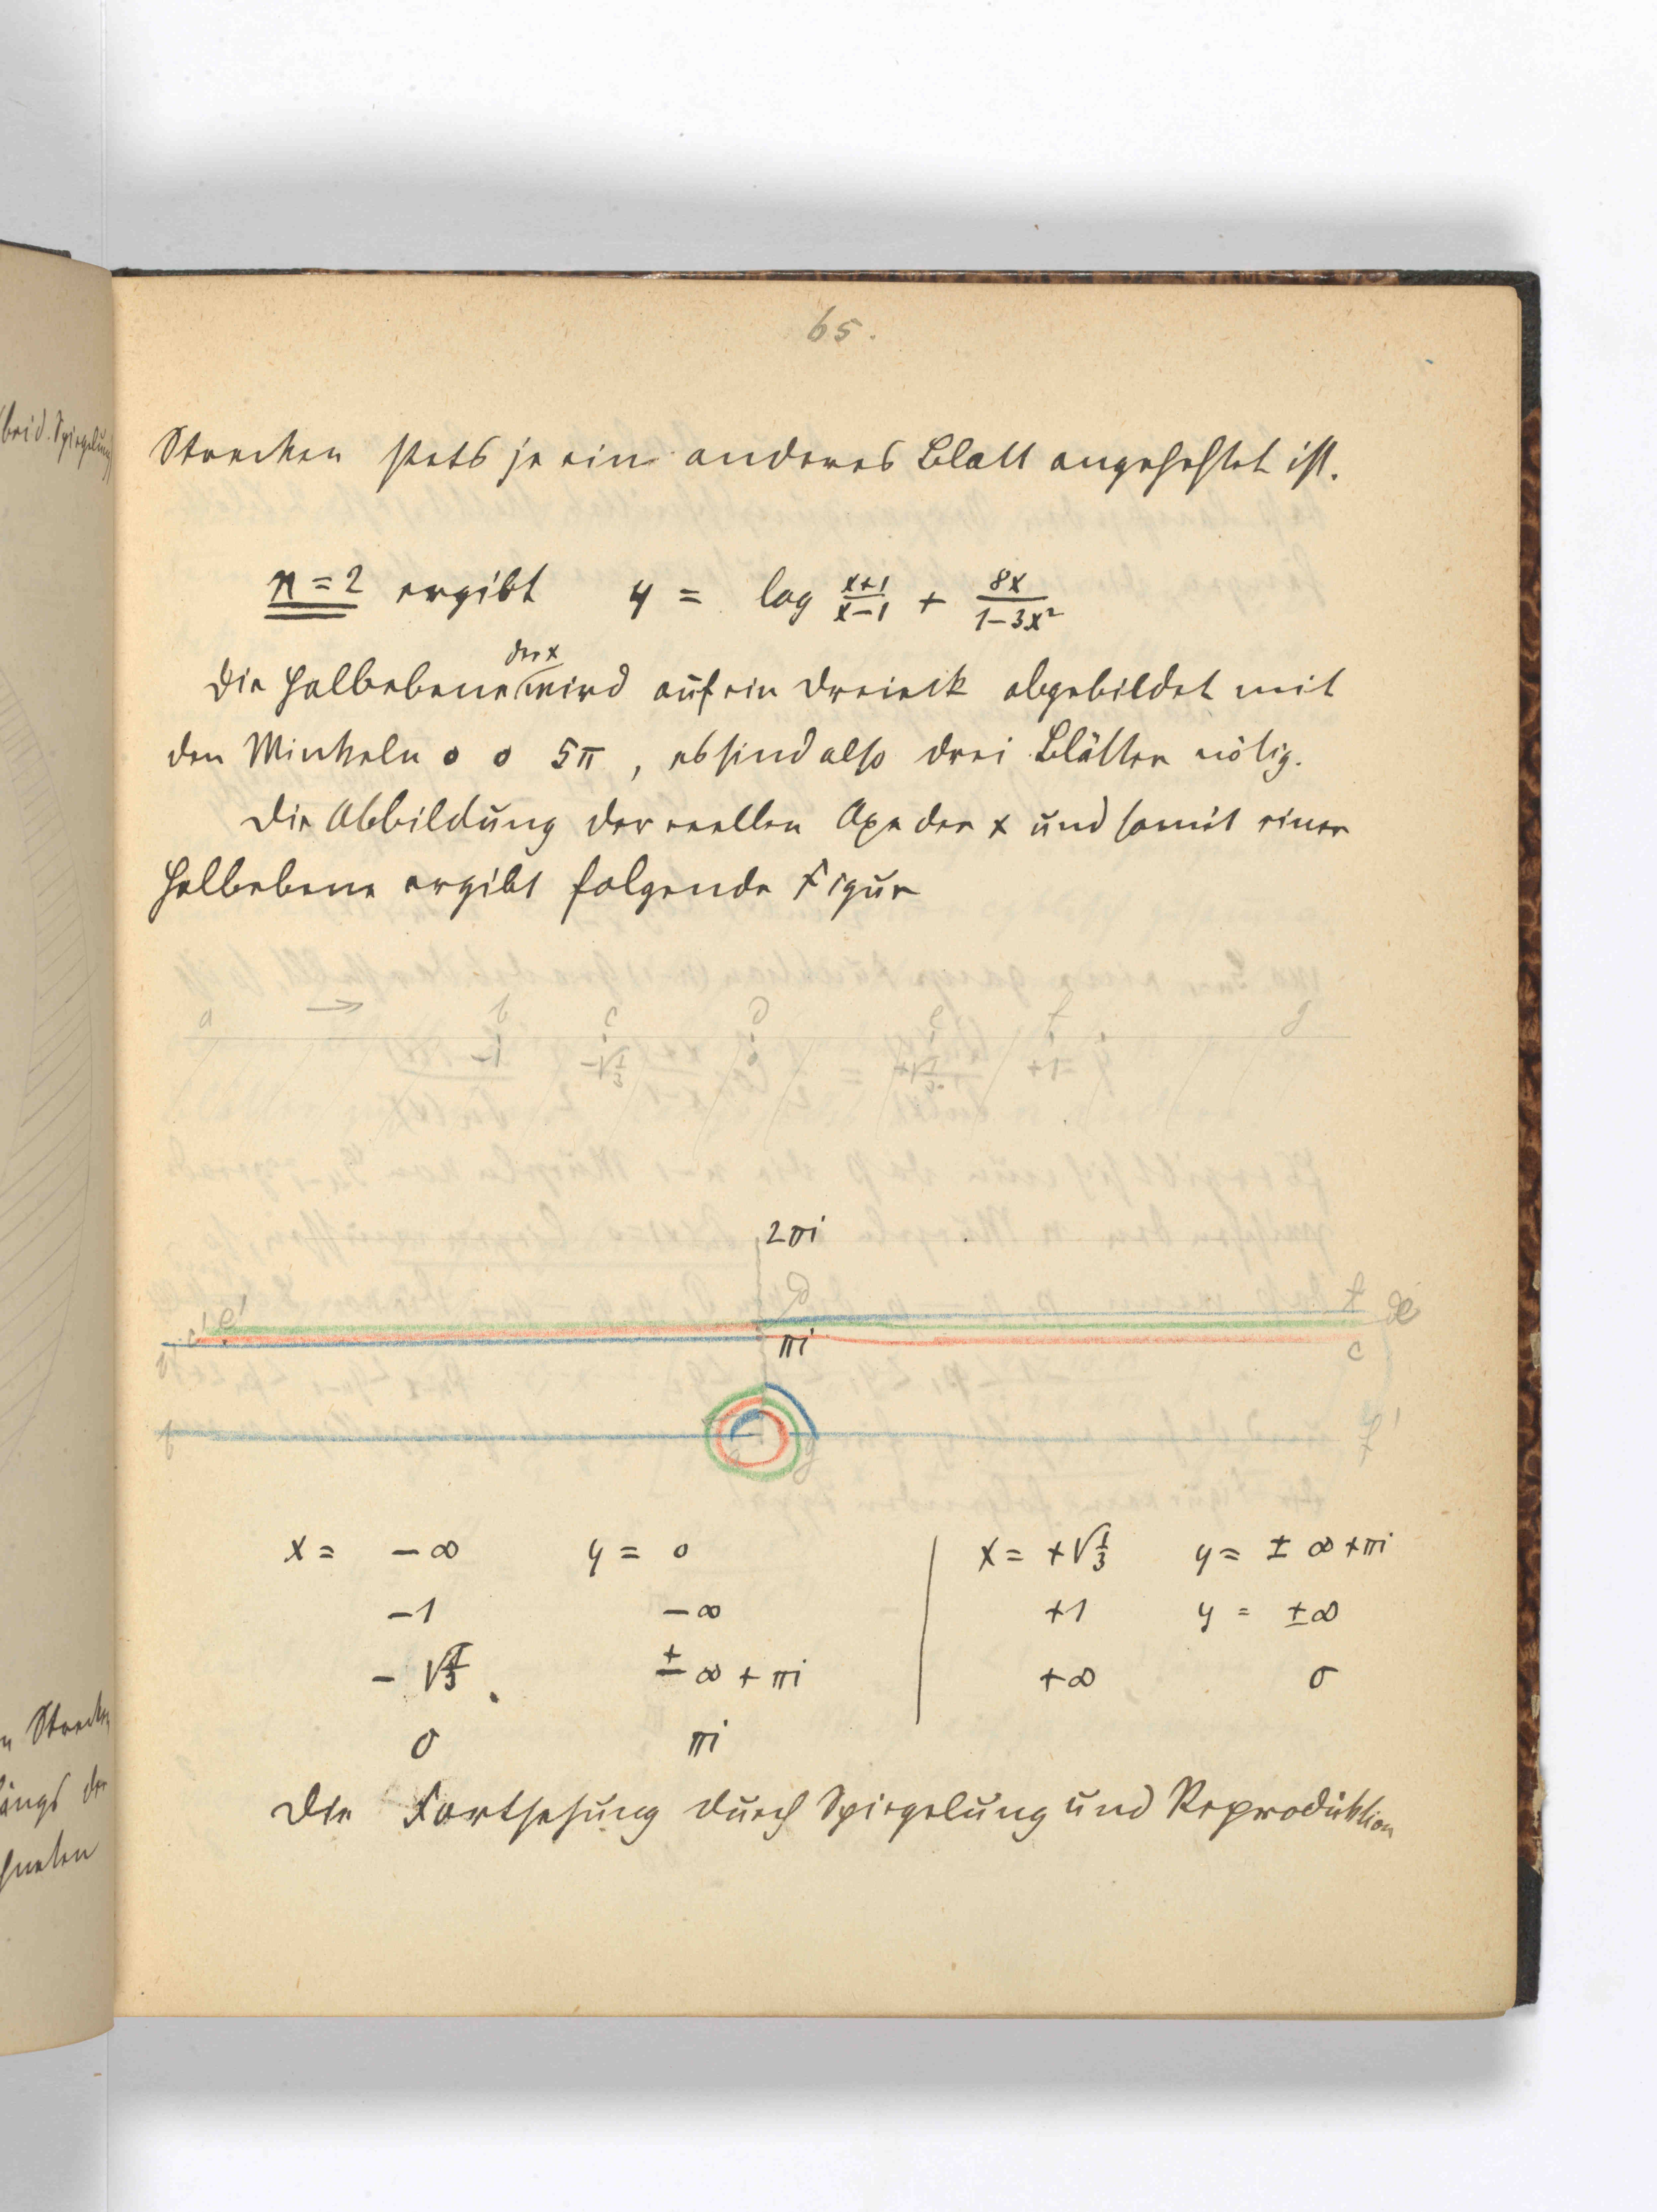 brid. Spiegelung
65.
Strecken stets je ein anderes Blatt angeheftet ist.
n = 2 ergibt y = log (x+1)/(x-1) + 8x/(1-3x²)
der x
Die Halbebene wird auf ein Dreieck abgebildet mit
den Winkeln 0 0 5π, es sind also drei Blätter nötig.
Die Abbildung der reellen Axe der x und somit einer
Halbebene ergibt folgende Figur
a b c d e f g
-1 -√1/3 0 +√1/3 +1
2πi
d f
c' e' de
b πi c
f f'
a g
x = -∞ y = 0 x = +√1/3 y = ± ∞ + πi
-1 -∞ +1 y = ±∞
-√1/3 ± ∞ + πi +∞ 0
0 πi
Die Fortsetzung durch Spiegelung und Reproduktion
n Strecken
längs der